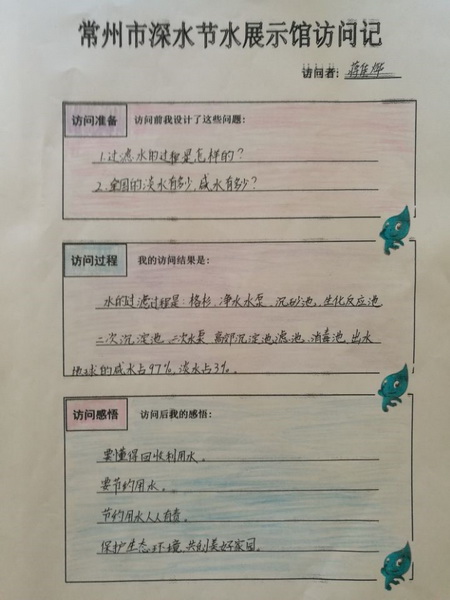 常州市深水节水展示馆访问记
访问者：
访问准备 访问前我设计了这些问题：
1.过滤水的过程是怎样的？
2.全国的淡水有多少,咸水有多少？
访问过程 我的访问结果是：
水的过滤过程是：格杉、净水水泵、沉砂池、生化反应池
二次沉淀池、二次水泵、高郊沉淀池滤池、消毒池、出水
地球的咸水占97%,淡水占3%。
访问感悟 访问后我的感悟：
要懂得回收利用水。
要节约用水。
节约用水人人有责。
保护生态环境,共创美好家园。